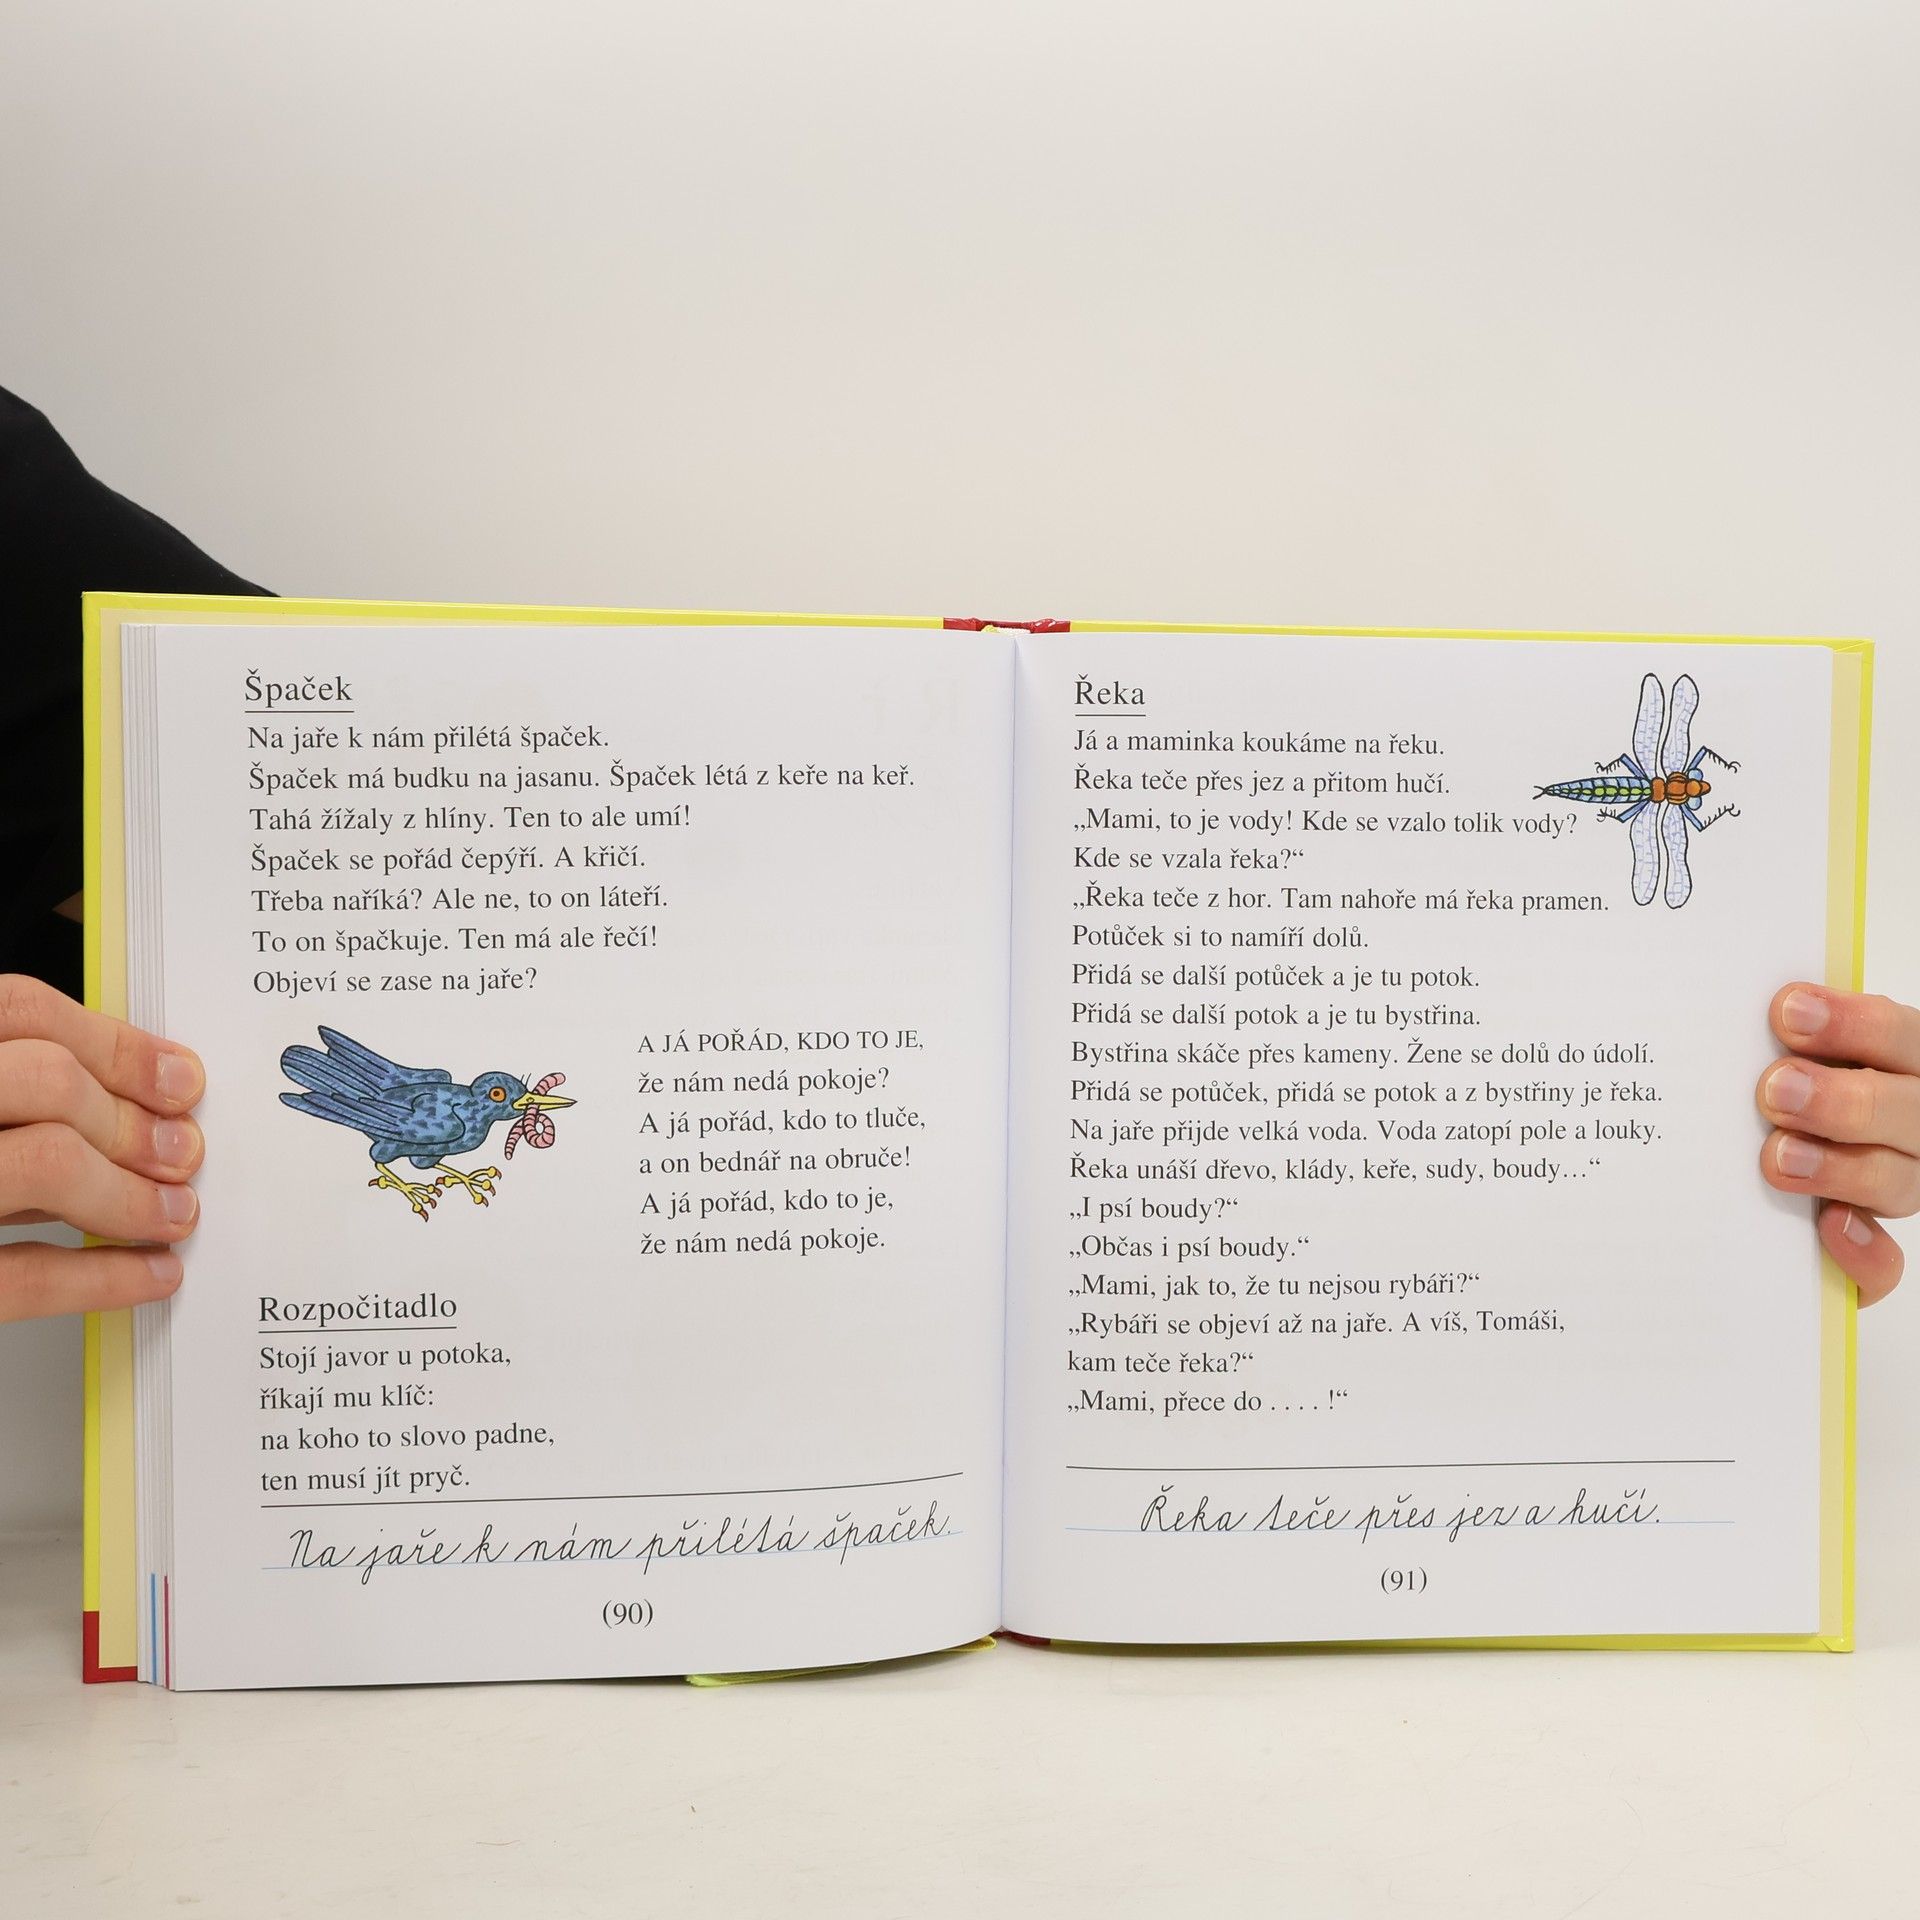 Špaček
Na jaře k nám přilétá špaček.
Špaček má budku na jasanu. Špaček létá z keře na keř.
Tahá žížaly z hlíny. Ten to ale umí!
Špaček se pořád čepýří. A křičí.
Třeba naříká? Ale ne, to on láteří.
To on špačkuje. Ten má ale řečí!
Objeví se zase na jaře?
A JÁ POŘÁD, KDO TO JE,
že nám nedá pokoje?
A já pořád, kdo to tluče,
a on bednář na obruče!
A já pořád, kdo to je,
že nám nedá pokoje.
Rozpočitadlo
Stojí javor u potoka,
říkají mu klíč:
na koho to slovo padne,
ten musí jít pryč.
Na jaře k nám přilétá špaček.
(90)
Řeka
Já a maminka koukáme na řeku.
Řeka teče přes jez a přitom hučí.
„Mami, to je vody! Kde se vzalo tolik vody?
Kde se vzala řeka?“
„Řeka teče z hor. Tam nahoře má řeka pramen.
Potůček si to namíří dolů.
Přidá se další potůček a je tu potok.
Přidá se další potok a je tu bystřina.
Bystřina skáče přes kameny. Žene se dolů do údolí.
Přidá se potůček, přidá se potok a z bystřiny je řeka.
Na jaře přijde velká voda. Voda zatopí pole a louky.
Řeka unáší dřevo, klády, keře, sudy, boudy…“
„I psí boudy?“
„Občas i psí boudy.“
„Mami, jak to, že tu nejsou rybáři?“
„Rybáři se objeví až na jaře. A víš, Tomáši,
kam teče řeka?“
„Mami, přece do . . . . !“
Řeka teče přes jez a hučí.
(91)